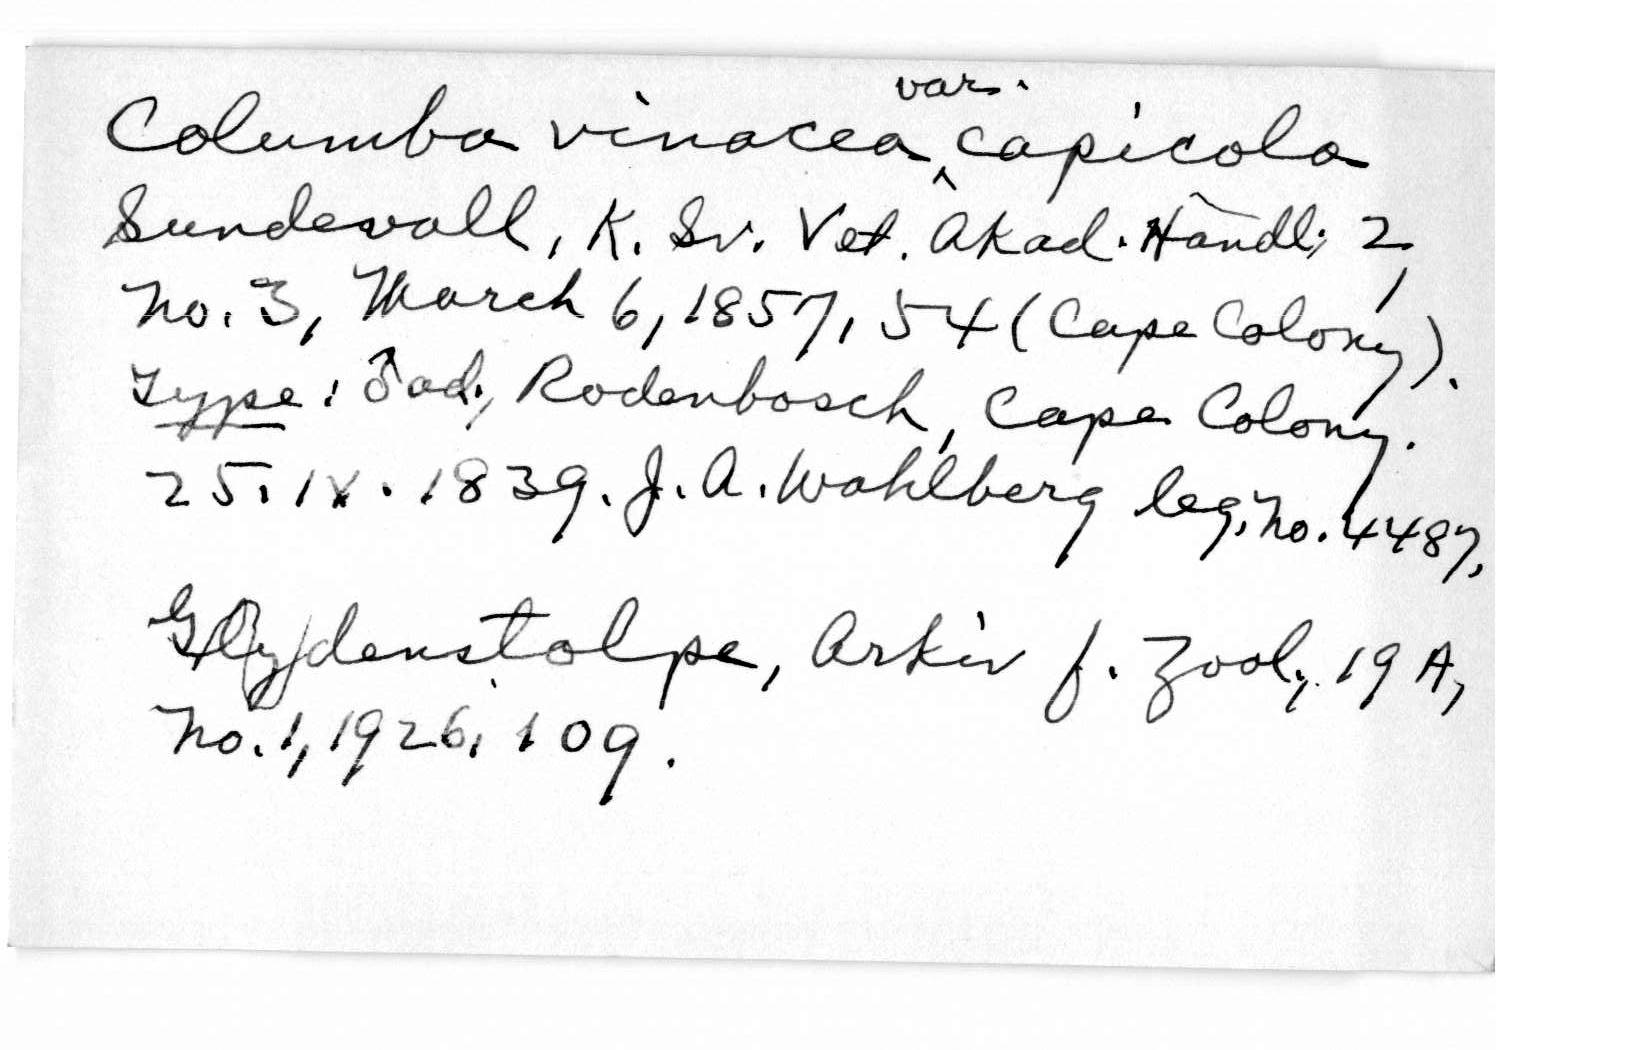 Columba vinacea var. capicola
Sundevall, K. Sv. Vet. Akad. Handl; 2,
no. 3, March 6, 1857, 54 (Cape Colony).
Type: ♂ ad., Rodenbosch, Cape Colony.
25.IX.1839. J.A. Wahlberg leg. no. 4487,
Gyldenstolpe, Arkiv f. Zool., 19 A,
no. 1, 1926, 109.